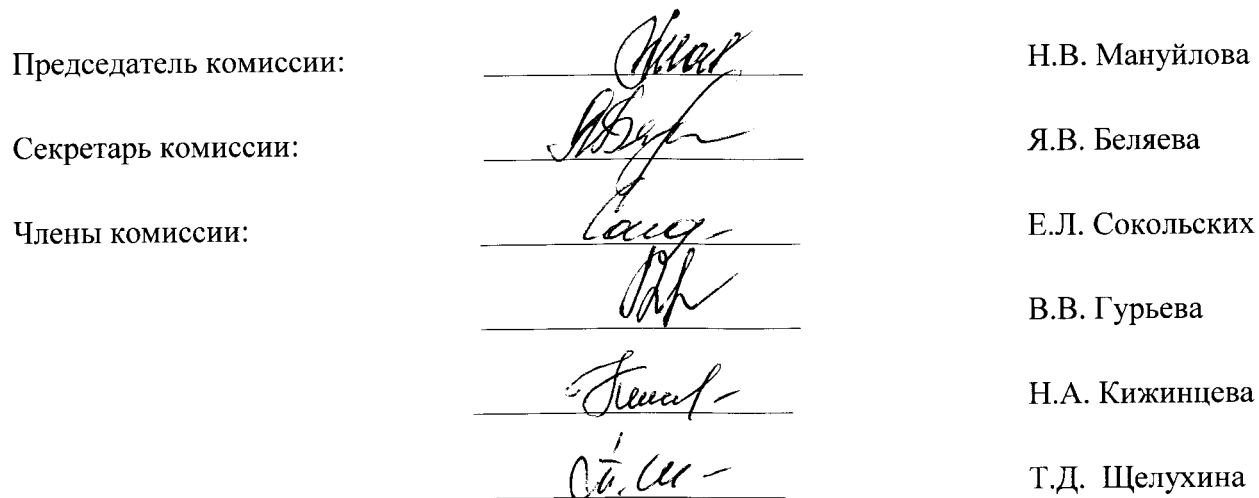 Председатель комиссии: Н.В. Мануйлова
Секретарь комиссии: Я.В. Беляева
Члены комиссии: Е.Л. Сокольских
В.В. Гурьева
Н.А. Кижинцева
Т.Д. Щелухина